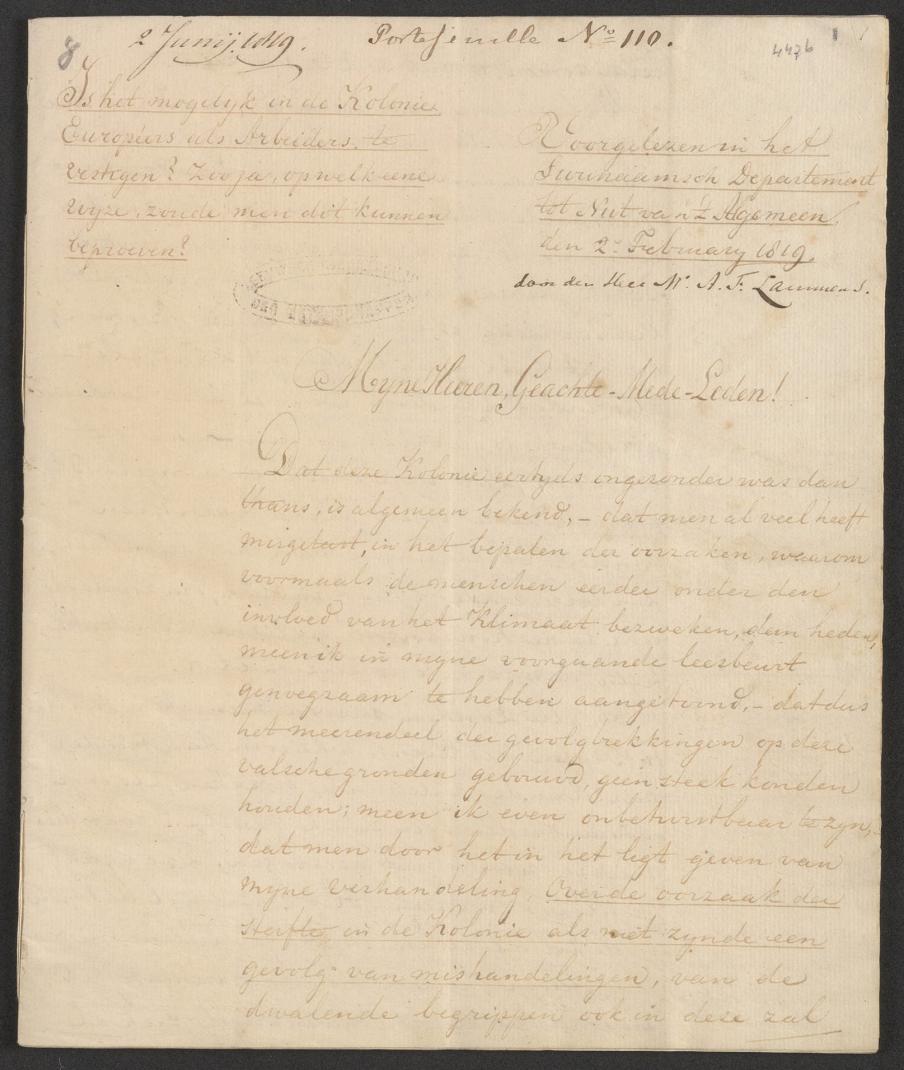 8
2 Junij. 1819.
Portefeuille No 110.
447b
1
Is het mogelyk in de Kolonie
Europeërs als Arbeiders, te
vestigen? Zoo ja, op welk eene
wyze, zoude men dit kunnen
beproeven?
Voorgelezen in het
Surinaamsch Departement
tot Nut van 't Algemeen,
den 2e February 1819.
door den Heer Mr. A. F. Lammens.
Myne Heeren, Geachte-Mede-Leden!
Dat deze Kolonie eertyds ongezonder was dan
thans, is algemeen bekend, - dat men al veel heeft
misgetast, in het bepalen der oorzaken, waarom
voormaals de menschen eerder onder den
invloed van het Klimaat bezweken, dan heden,
meen ik in myne voorgaande leesbeurt
genoegzaam te hebben aangetoond, - dat dus
het meerendeel der gevolgtrekkingen op deze
valsche gronden gebouwd, geen steek konden
houden; meen ik even onbetwistbaar te zyn,
dat men door het in het ligt geven van
myne verhandeling, Over de oorzaak der
sterfte, in de Kolonie als niet zynde een
gevolg van mishandelingen, van de
dwalende begrippen ook in deze zal